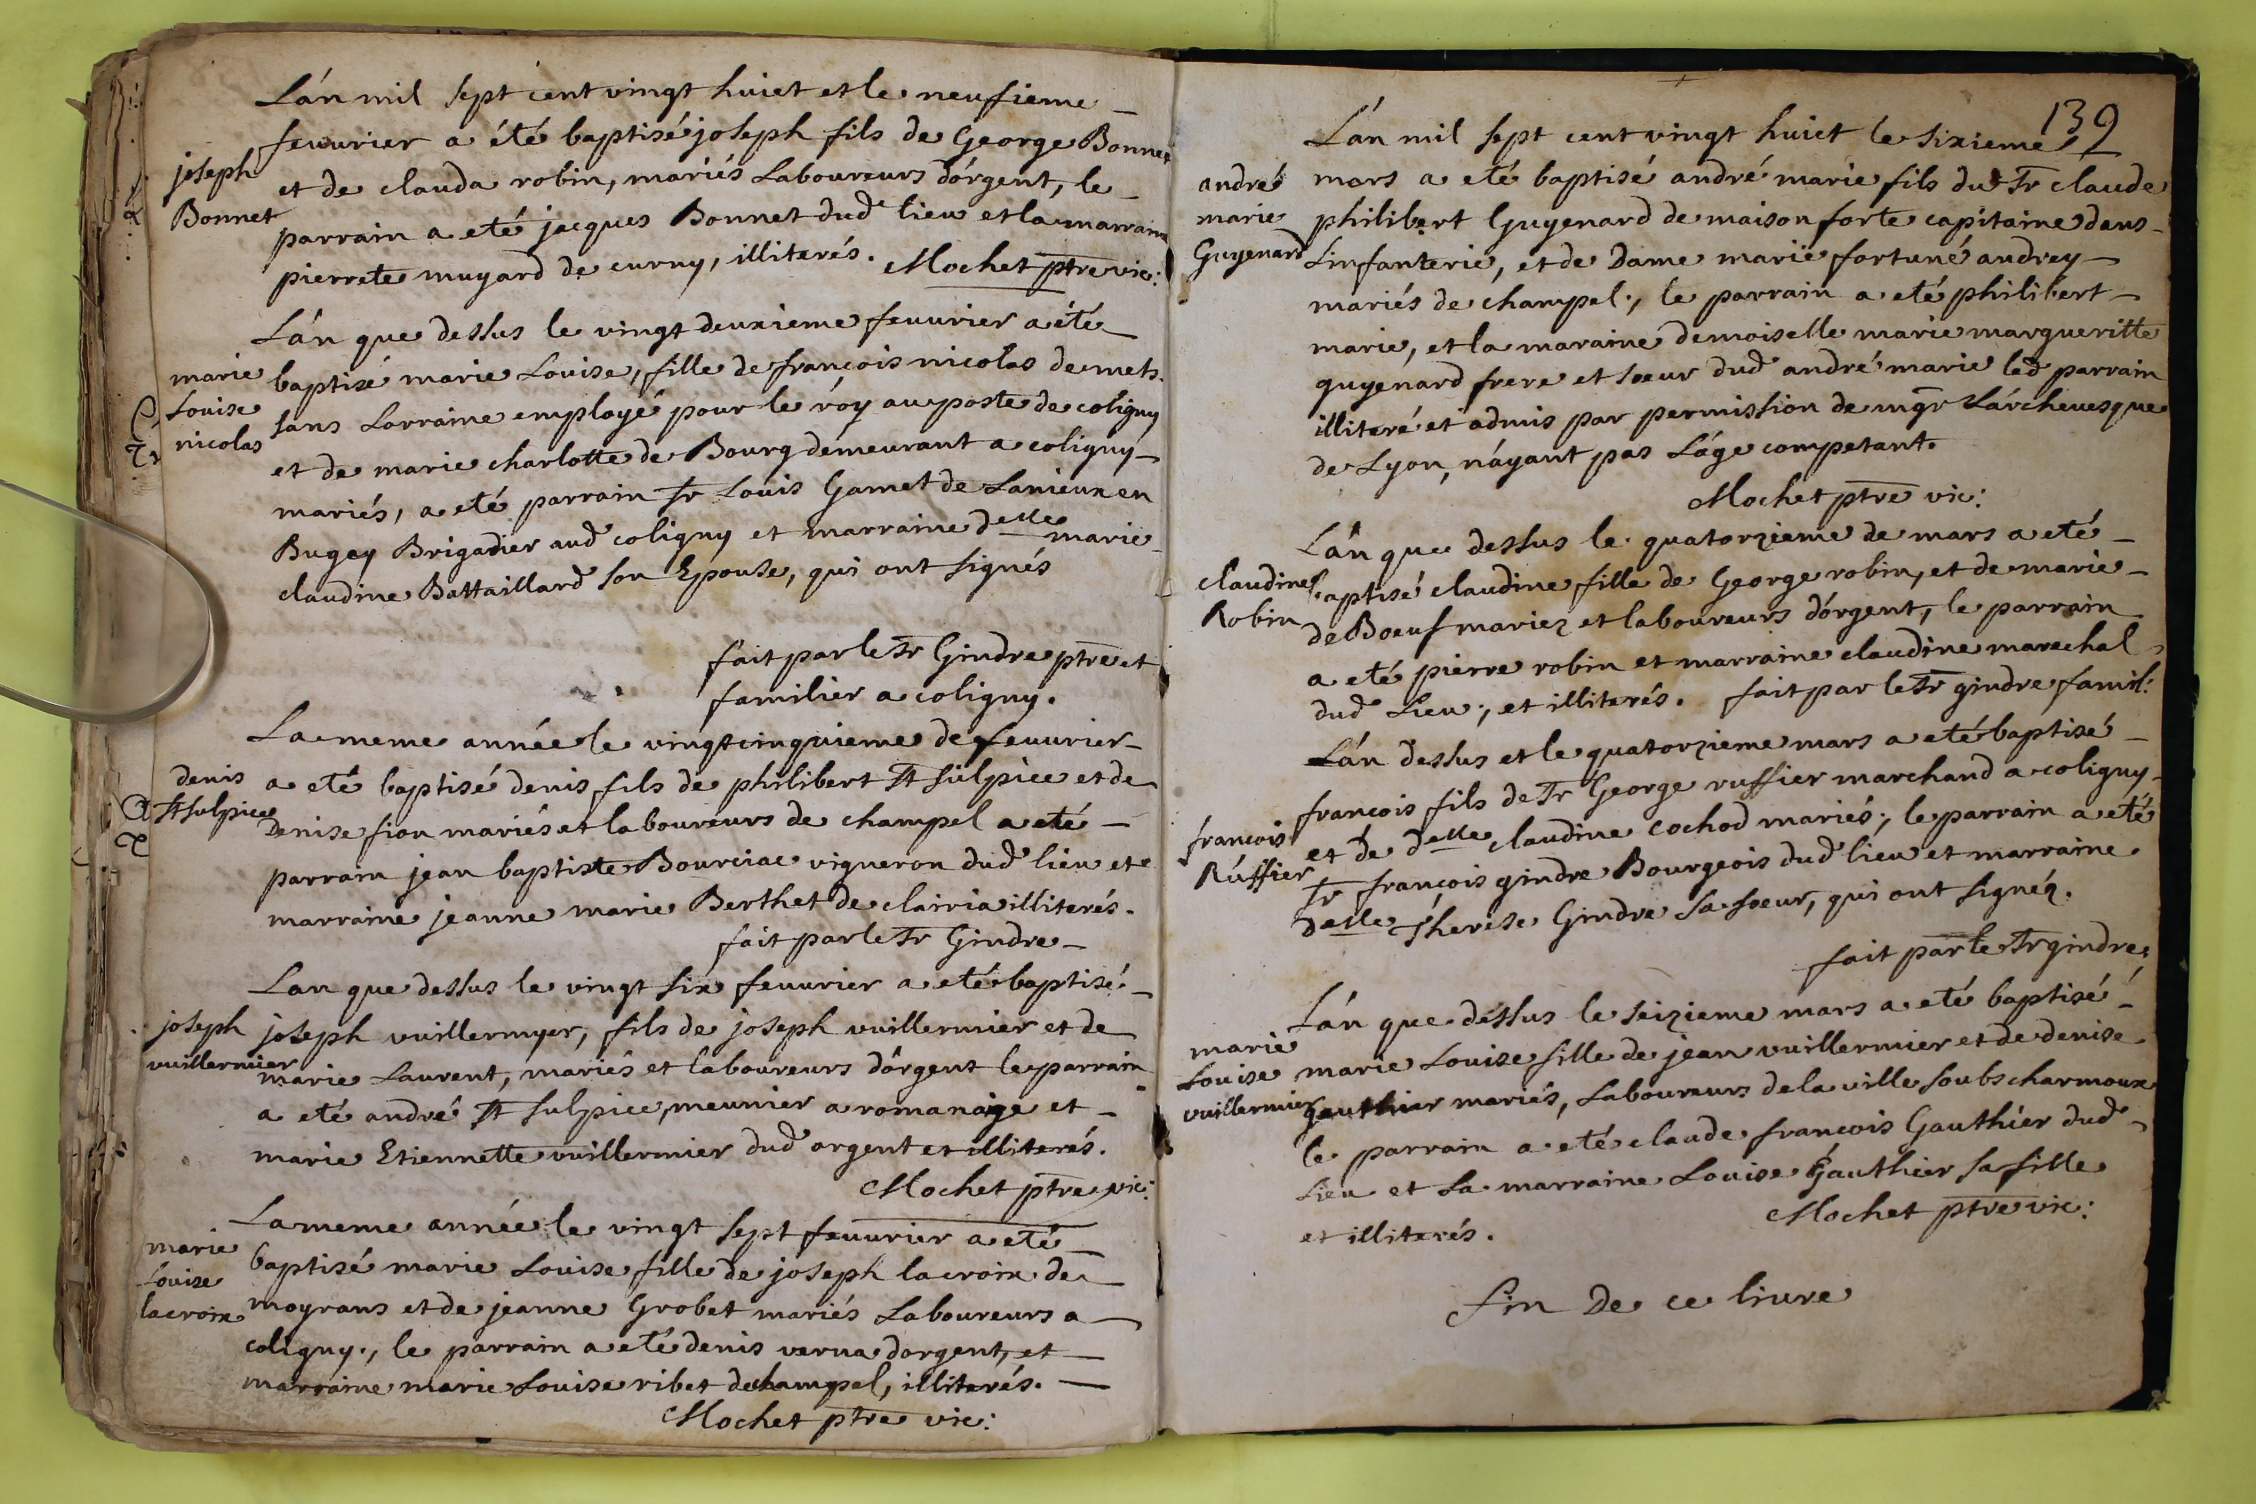 Lán mil sept cent vingt huict et le neufieme
feuurier a été baptisé joseph fils de George Bonnet
joseph
Bonnet
et de clauda robin, mariés Laboureurs dórgent, le
parrain a eté jacques Bonnet dud lieu et la marraine
pierrete muyard de curny, illiterés. Mochet ptre vic:
Lán que dessus le vingt deuxieme feuurier a été
marie
Louise
nicolas
baptisé marie Louise, fille de françois nicolas de mets
sans Lorraine employé pour le róy au poste de coligny
et de marie charlotte de Bourg demeurant a coligny
mariés, a eté parrain sr Louis Gamet de Lanieux en
Bugey Brigadier aud coligny et marraine delle marie
claudine Battaillard son Epouse, qui ont signés
fait par le sr Gindre ptre et
familier a coligny.
La meme année le vingt cinquieme de feuurier
denis
st sulpice
a eté baptisé denis fils de philibert st sulpice et de
Denise fion mariés et laboureurs de champel a eté
parrain jean baptiste Bourciac vigneron dud lieu et
marraine jeanne marie Berthet de clairia illiterés.
fait par le sr Gindre
Lan que dessus le vingt six feuurier a eté baptisé
joseph
vuillermier
joseph vuillermyer, fils de joseph vuillermier et de
marie Laurent, mariés et laboureurs dórgent le parrain
a eté andré st sulpice, meunier a romanaige et
marie Etiennette vuillermier dud orgent et illiterés.
Mochet ptre vic:
La meme année le vingt sept feuurier a eté
marie
Louise
lacroix
baptisé marie Louise fille de joseph lacroix de
moyrans et de jeanne Grobet mariés Laboureurs a
coligny., le parrain a eté denis verna dorgent, et
marraine marie Louise ribet de champel, illiterés.
Mochet ptre vic:
139
Lán mil sept cent vingt huict le sixieme
andré
marie
Guyenard
mars a eté baptisé andré marie fils du sr claude
philibert Guyenard de maison forte capitaine dans
Linfanterie, et de Dame marie fortuné andrey
mariés de champel., le parrain a eté philibert
marie, et la maraine demoiselle marie margueritte
guyenard frere et soeur dud andré marie led parrain
illiteré et admis par permission de mgr Lárcheuesque
de Lyon, náyant pas Láge competant.
Mochet ptre vic:
Lán que dessus le quatorzieme de mars a eté
claudine
Robin
baptisé claudine fille de George robin, et de marie
de Boeuf mariez et laboureurs dórgent, le parrain
a eté pierre robin et marraine claudine marechal
dud Lieu., et illiterés. fait par le sr gindre famil:
Lán dessus et le quatorzieme mars a eté baptisé
françois
Rúffier
françois fils de sr George ruffier marchand a coligny
et de delle claudine cochod mariés., le parrain a eté
sr françois gindre Bourgeois dud lieu et marraine
delle therese Gindre sa soeur, qui ont signéz.
fait par le sr gindre
Lán que dessus le seizieme mars a eté baptisé
marie
Louise
vuillermier
marie Louise fille de jean vuillermier et de denise
gauthier mariés, Laboureurs de la ville soubs charmoux
le parrain a eté claude françois Gauthier dud
Lieu et la marraine Louise Gauthier sa fille
et illiterés. Mochet ptre vic:
fin De ce liure